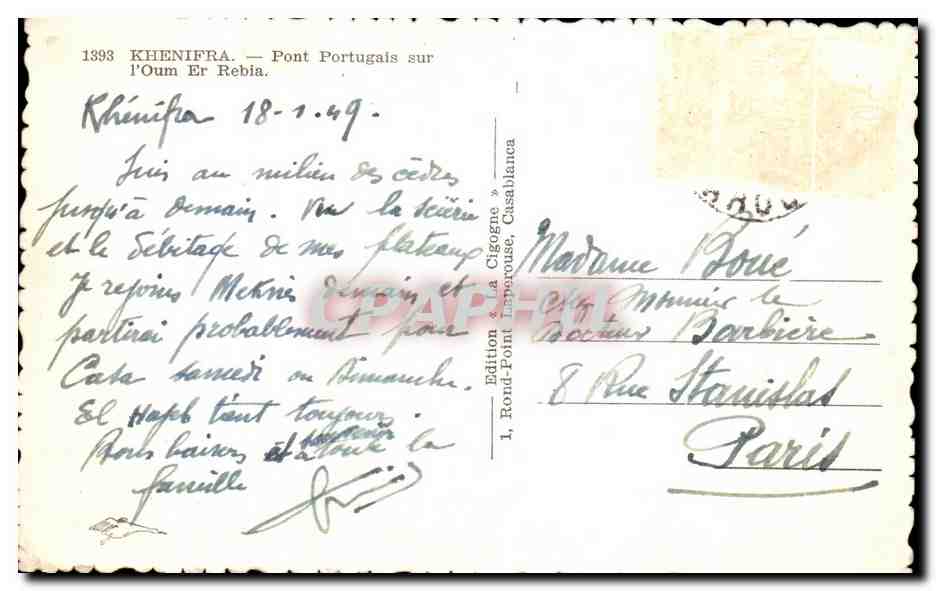 1393 KHENIFRA. — Pont Portugais sur
l'Oum Er Rebia.
Khénifra 18-1.49.
Suis au milieu des cèdres
jusqu'à demain. Vu la scierie
et le débitage de mes plateaux
Je rejoins Meknès demain et
partirai probablement pour
Casa samedi ou Dimanche.
El Hajeb tient toujours.
Bons baisers et à toute la
famille
Edition « La Cigogne »
1, Rond-Point Laperouse, Casablanca
Madame Boué
chez Monsieur le
Docteur Barbière
8 Rue Stanislas
Paris
CPAPHIL